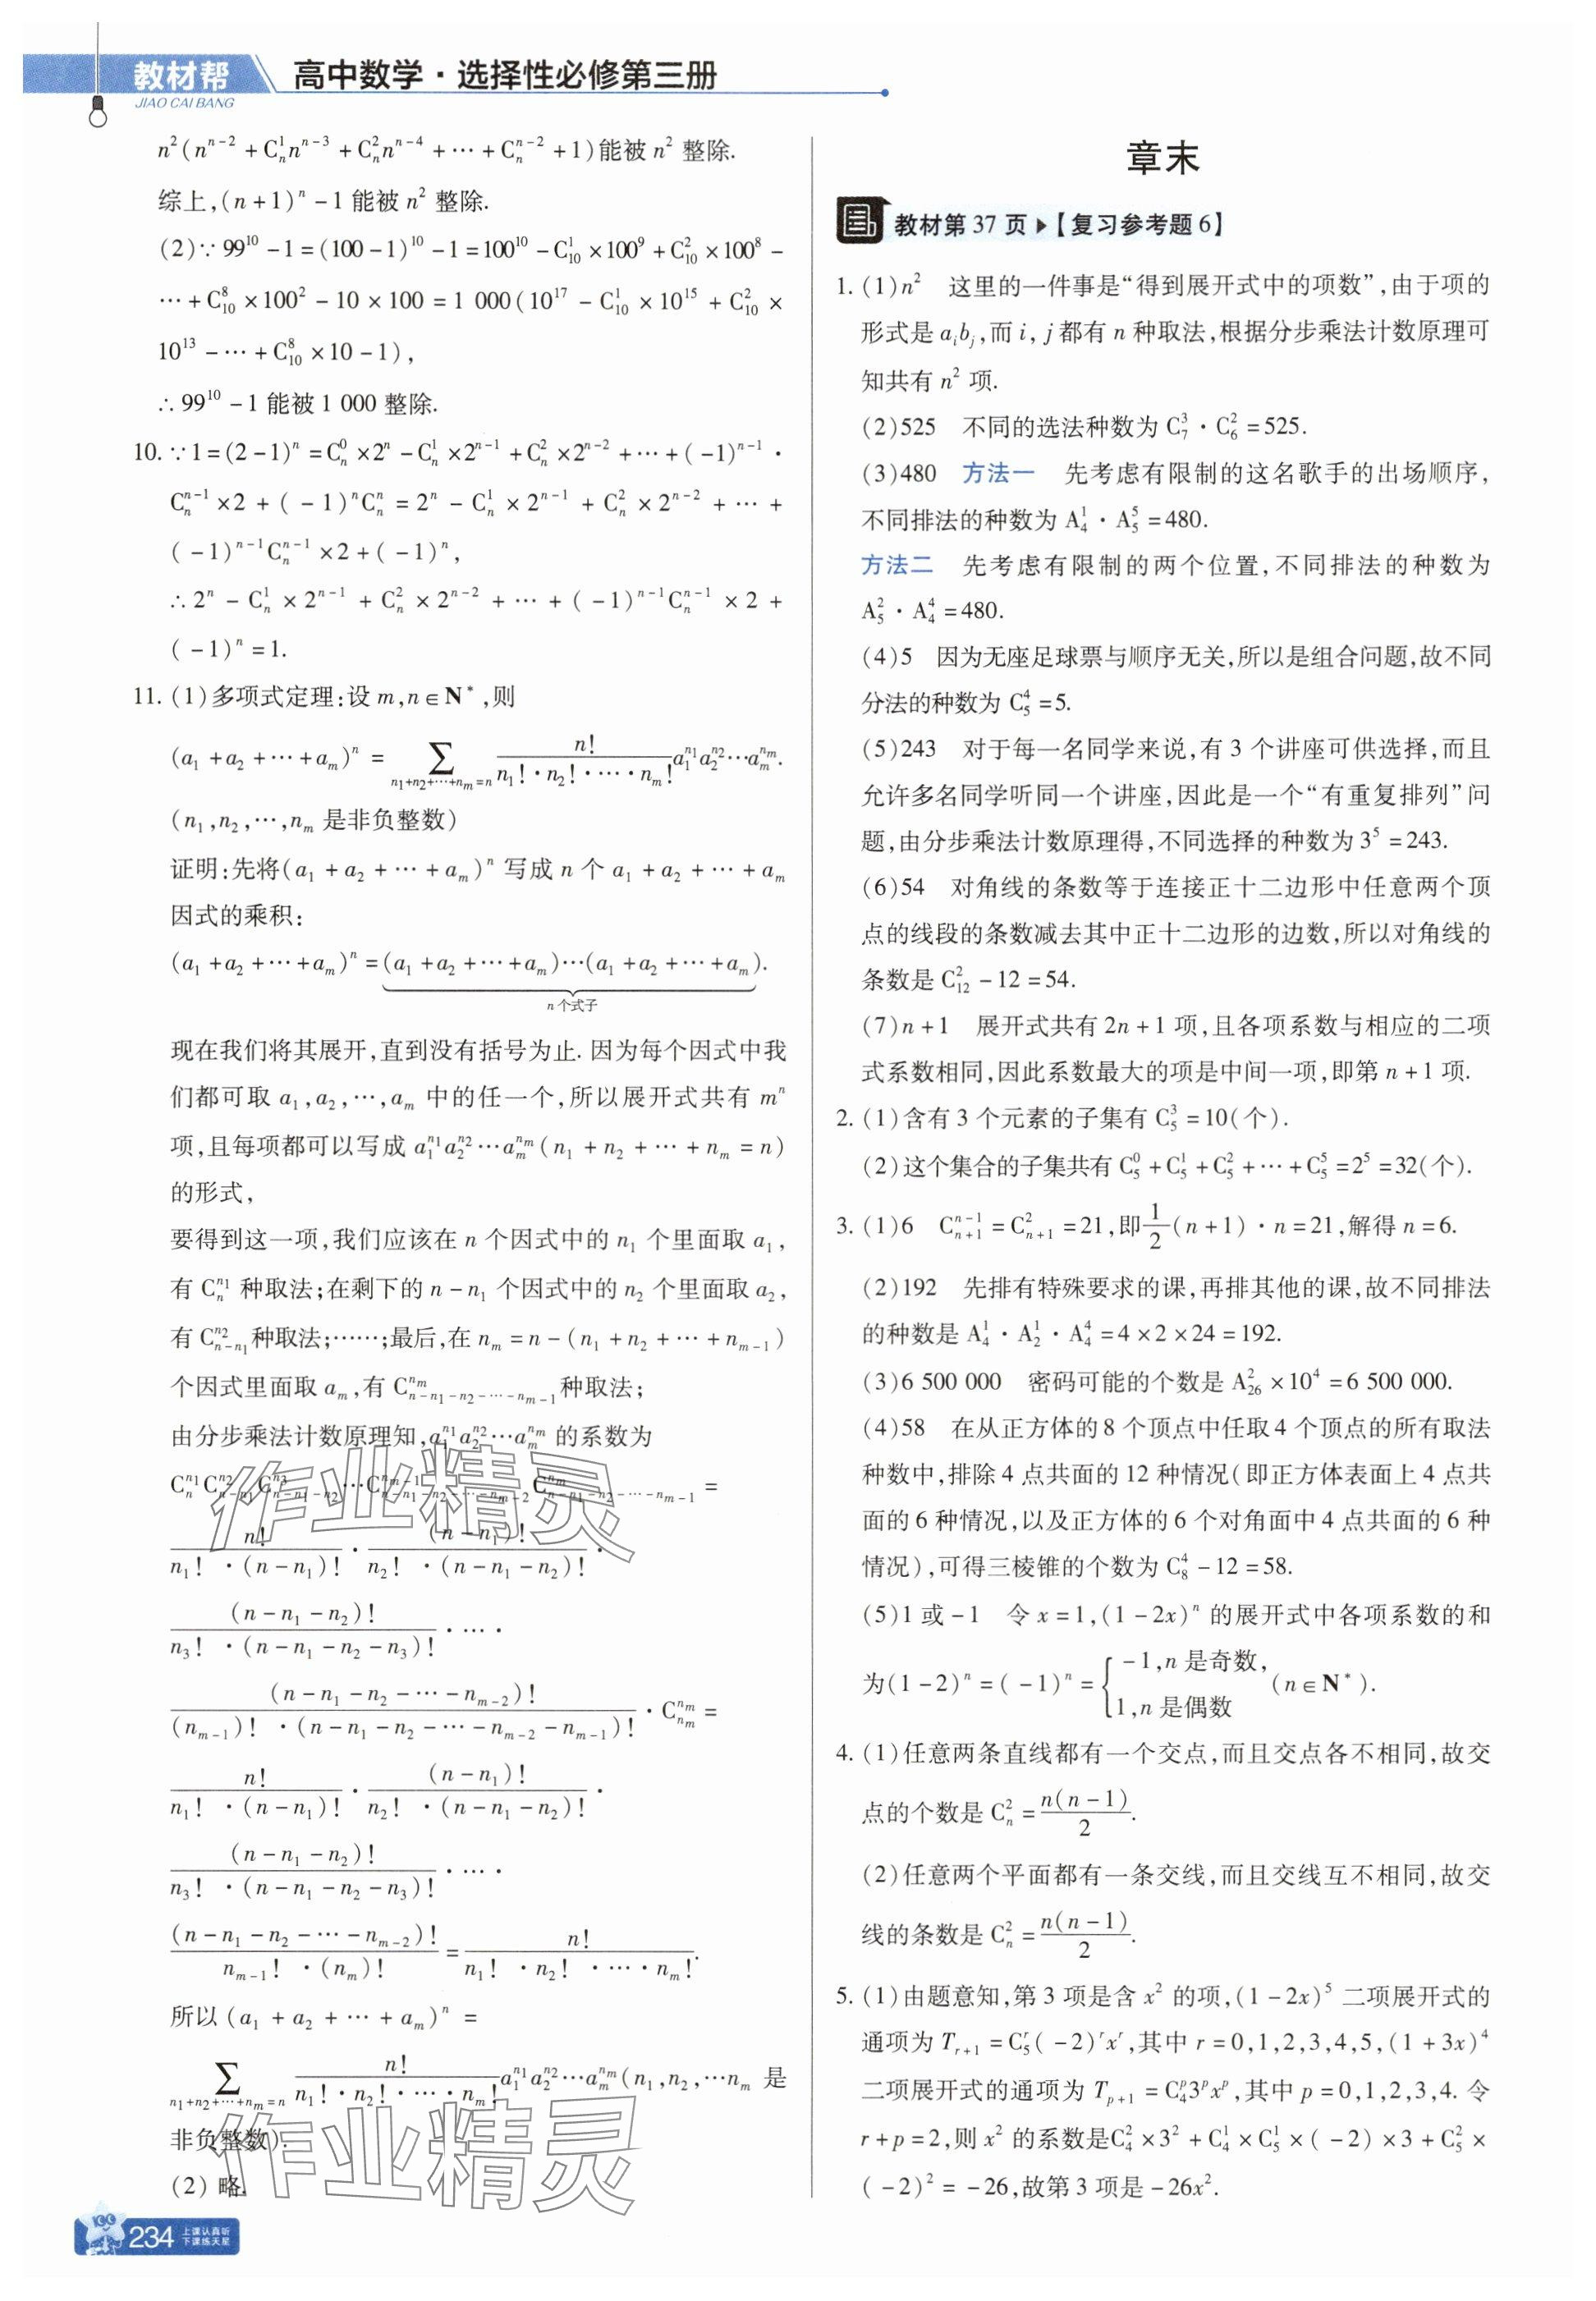 教材帮
JIAO CAI BANG
高中数学·选择性必修第三册
n²(nⁿ⁻² + C_n^1 n^{n-3} + C_n^2 n^{n-4} + ⋯ + C_n^{n-2} + 1)能被 n² 整除.
综上,(n+1)ⁿ - 1 能被 n² 整除.
(2)∵ 99^{10} - 1 = (100-1)^{10} - 1 = 100^{10} - C_{10}^1 × 100^9 + C_{10}^2 × 100^8 -
⋯ + C_{10}^8 × 100² - 10 × 100 = 1 000(10^{17} - C_{10}^1 × 10^{15} + C_{10}^2 ×
10^{13} - ⋯ + C_{10}^8 × 10 - 1),
∴ 99^{10} - 1 能被 1 000 整除.
10. ∵ 1 = (2-1)^n = C_n^0 × 2^n - C_n^1 × 2^{n-1} + C_n^2 × 2^{n-2} + ⋯ + (-1)^{n-1} ·
C_n^{n-1} × 2 + (-1)^n C_n^n = 2^n - C_n^1 × 2^{n-1} + C_n^2 × 2^{n-2} + ⋯ +
(-1)^{n-1} C_n^{n-1} × 2 + (-1)^n,
∴ 2^n - C_n^1 × 2^{n-1} + C_n^2 × 2^{n-2} + ⋯ + (-1)^{n-1} C_n^{n-1} × 2 +
(-1)^n = 1.
11. (1)多项式定理:设 m,n∈N*,则
(a_1 + a_2 + ⋯ + a_m)^n = ∑_{n_1+n_2+⋯+n_m=n} n!/(n_1!·n_2!·⋯·n_m!) a_1^{n_1} a_2^{n_2} ⋯ a_m^{n_m}.
(n_1,n_2,⋯,n_m 是非负整数)
证明:先将(a_1 + a_2 + ⋯ + a_m)^n 写成 n 个 a_1 + a_2 + ⋯ + a_m
因式的乘积:
(a_1 + a_2 + ⋯ + a_m)^n = (a_1 + a_2 + ⋯ + a_m)⋯(a_1 + a_2 + ⋯ + a_m).
n 个式子
现在我们将其展开,直到没有括号为止. 因为每个因式中我
们都可取 a_1,a_2,⋯,a_m 中的任一个,所以展开式共有 m^n
项,且每项都可以写成 a_1^{n_1} a_2^{n_2} ⋯ a_m^{n_m}(n_1 + n_2 + ⋯ + n_m = n)
的形式,
要得到这一项,我们应该在 n 个因式中的 n_1 个里面取 a_1,
有 C_n^{n_1} 种取法;在剩下的 n - n_1 个因式中的 n_2 个里面取 a_2,
有 C_{n-n_1}^{n_2} 种取法;⋯⋯;最后,在 n_m = n - (n_1 + n_2 + ⋯ + n_{m-1})
个因式里面取 a_m,有 C_{n-n_1-n_2-⋯-n_{m-1}}^{n_m} 种取法;
由分步乘法计数原理知,a_1^{n_1} a_2^{n_2} ⋯ a_m^{n_m} 的系数为
C_n^{n_1} C_{n-n_1}^{n_2} C_{n-n_1-n_2}^{n_3} ⋯ C_{n-n_1-n_2-⋯-n_{m-2}}^{n_{m-1}} C_{n-n_1-n_2-⋯-n_{m-1}}^{n_m} =
n!/(n_1! ·(n-n_1)!) · (n-n_1)!/(n_2! ·(n-n_1-n_2)!) ·
(n-n_1-n_2)!/(n_3! ·(n-n_1-n_2-n_3)!) · ⋯ ·
(n-n_1-n_2-⋯-n_{m-2})!/((n_{m-1})! ·(n-n_1-n_2-⋯-n_{m-2}-n_{m-1})!) · C_{n_m}^{n_m} =
n!/(n_1! ·(n-n_1)!) · (n-n_1)!/(n_2! ·(n-n_1-n_2)!) ·
(n-n_1-n_2)!/(n_3! ·(n-n_1-n_2-n_3)!) · ⋯ ·
(n-n_1-n_2-⋯-n_{m-2})!/(n_{m-1}! ·(n_m)!) = n!/(n_1! ·n_2! ·⋯·n_m!).
所以 (a_1 + a_2 + ⋯ + a_m)^n =
∑_{n_1+n_2+⋯+n_m=n} n!/(n_1!·n_2!·⋯·n_m!) a_1^{n_1} a_2^{n_2} ⋯ a_m^{n_m}(n_1,n_2,⋯n_m 是
非负整数).
(2) 略.
章末
教材第 37 页▶【复习参考题 6】
1. (1)n² 这里的一件事是“得到展开式中的项数”,由于项的
形式是 a_i b_j,而 i, j 都有 n 种取法,根据分步乘法计数原理可
知共有 n² 项.
(2)525 不同的选法种数为 C_7^3 · C_6^2 = 525.
(3)480 方法一 先考虑有限制的这名歌手的出场顺序,
不同排法的种数为 A_4^1 · A_5^5 = 480.
方法二 先考虑有限制的两个位置,不同排法的种数为
A_5^2 · A_4^4 = 480.
(4)5 因为无座足球票与顺序无关,所以是组合问题,故不同
分法的种数为 C_5^4 = 5.
(5)243 对于每一名同学来说,有 3 个讲座可供选择,而且
允许多名同学听同一个讲座,因此是一个“有重复排列”问
题,由分步乘法计数原理得,不同选择的种数为 3^5 = 243.
(6)54 对角线的条数等于连接正十二边形中任意两个顶
点的线段的条数减去其中正十二边形的边数,所以对角线的
条数是 C_{12}^2 - 12 = 54.
(7)n+1 展开式共有 2n+1 项,且各项系数与相应的二项
式系数相同,因此系数最大的项是中间一项,即第 n+1 项.
2. (1)含有 3 个元素的子集有 C_5^3 = 10(个).
(2)这个集合的子集共有 C_5^0 + C_5^1 + C_5^2 + ⋯ + C_5^5 = 2^5 = 32(个).
3. (1)6 C_{n+1}^{n-1} = C_{n+1}^2 = 21,即 1/2 (n+1)·n = 21,解得 n = 6.
(2)192 先排有特殊要求的课,再排其他的课,故不同排法
的种数是 A_4^1 · A_2^1 · A_4^4 = 4×2×24 = 192.
(3)6 500 000 密码可能的个数是 A_{26}^2 × 10^4 = 6 500 000.
(4)58 在从正方体的 8 个顶点中任取 4 个顶点的所有取法
种数中,排除 4 点共面的 12 种情况(即正方体表面上 4 点共
面的 6 种情况,以及正方体的 6 个对角面中 4 点共面的 6 种
情况),可得三棱锥的个数为 C_8^4 - 12 = 58.
(5)1 或 -1 令 x = 1,(1-2x)^n 的展开式中各项系数的和
为(1-2)^n = (-1)^n = { -1,n 是奇数, 1,n 是偶数 (n∈N*).
4. (1)任意两条直线都有一个交点,而且交点各不相同,故交
点的个数是 C_n^2 = n(n-1)/2.
(2)任意两个平面都有一条交线,而且交线互不相同,故交
线的条数是 C_n^2 = n(n-1)/2.
5. (1)由题意知,第 3 项是含 x² 的项,(1-2x)^5 二项展开式的
通项为 T_{r+1} = C_5^r(-2)^r x^r,其中 r = 0,1,2,3,4,5,(1+3x)^4
二项展开式的通项为 T_{p+1} = C_4^p 3^p x^p,其中 p = 0,1,2,3,4. 令
r+p = 2,则 x² 的系数是C_4^2 × 3² + C_4^1 × C_5^1 × (-2) × 3 + C_5^2 ×
(-2)² = -26,故第 3 项是 -26x².
作业精灵
作业精灵
234
上课认真听
下课练天星